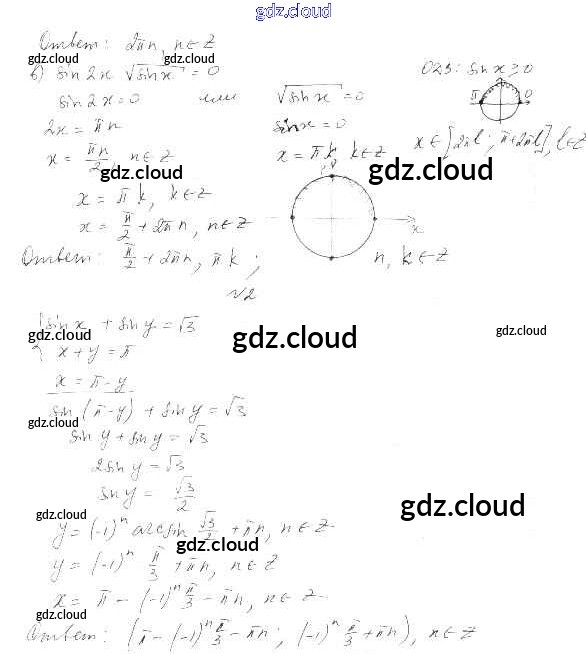 gdz.cloud
Ответ: 2πn, n∈Z
gdz.cloud
gdz.cloud
в) sin 2x √sin x = 0
ОДЗ: sin x ≥ 0
sin 2x = 0 или √sin x = 0
π 0
2x = πn
sin x = 0
x = πn/2, n∈Z
x = πk, k∈Z
x∈[2πl; π+2πl], l∈Z
gdz.cloud
gdz.cloud
x = πk, k∈Z
x = π/2 + 2πn, n∈Z
x
Ответ: π/2 + 2πn, πk; n, k∈Z
gdz.cloud
№2
{ sin x + sin y = √3
x + y = π
gdz.cloud
gdz.cloud
x = π - y
sin(π-y) + sin y = √3
gdz.cloud
sin y + sin y = √3
2 sin y = √3
sin y = √3/2
gdz.cloud
gdz.cloud
y = (-1)ⁿ arcsin √3/2 + πn, n∈Z
gdz.cloud
y = (-1)ⁿ π/3 + πn, n∈Z
x = π - (-1)ⁿ π/3 - πn, n∈Z
gdz.cloud
Ответ: (π - (-1)ⁿ π/3 - πn; (-1)ⁿ π/3 + πn), n∈Z
gdz.cloud